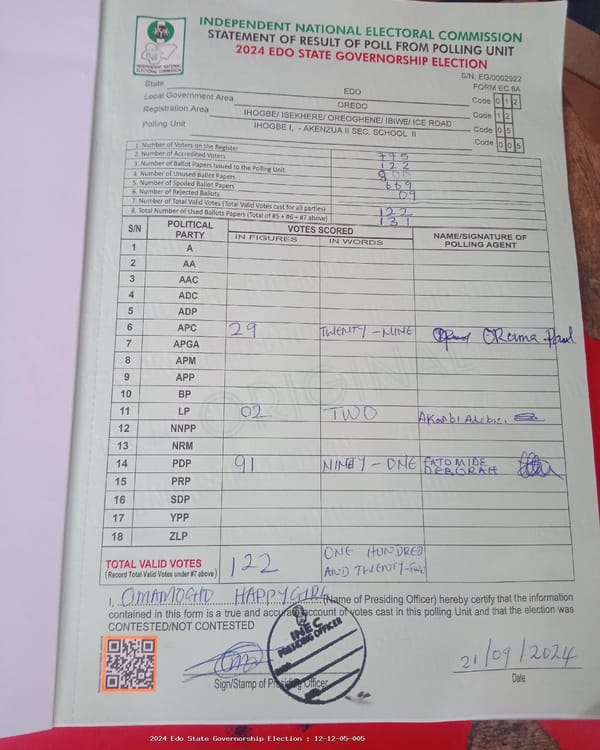 INDEPENDENT NATIONAL ELECTORAL COMMISSION
STATEMENT OF RESULT OF POLL FROM POLLING UNIT
2024 EDO STATE GOVERNORSHIP ELECTION
INDEPENDENT NATIONAL ELECTORAL COMMISSION
S/N. EG/0002022
FORM EC 8A
State EDO Code 0 1 2
Local Government Area OREDO Code 1 2
Registration Area IHOGBE/ ISEKHERE/ OREOGHENE/ IBIWE/ ICE ROAD Code 0 5
Polling Unit IHOGBE I, - AKENZUA II SEC. SCHOOL II Code 0 0 5
1. Number of Voters on the Register 775
2. Number of Accredited Voters 122
3. Number of Ballot Papers Issued to the Polling Unit 800
4. Number of Unused Ballot Papers 669
5. Number of Spoiled Ballot Papers 09
6. Number of Rejected Ballots
7. Number of Total Valid Votes (Total Valid Votes cast for all parties) 122
8. Total Number of Used Ballots Papers (Total of #5 + #6 + #7 above) 131
S/N POLITICAL PARTY VOTES SCORED NAME/SIGNATURE OF POLLING AGENT
IN FIGURES IN WORDS
1 A
2 AA
3 AAC
4 ADC
5 ADP
6 APC 29 TWENTY-NINE ORuma Paul
7 APGA
8 APM
9 APP
10 BP
11 LP 02 TWO
12 NNPP
13 NRM
14 PDP 91 NINETY-ONE FATOMIDE DEBORAH
15 PRP
16 SDP
17 YPP
18 ZLP
ORIGINAL
TOTAL VALID VOTES 122 ONE HUNDRED
(Record Total Valid Votes under #7 above) AND TWENTY-TWO
I, OMAMOGHO HAPPYGIRL (Name of Presiding Officer) hereby certify that the information
contained in this form is a true and accurate account of votes cast in this polling Unit and that the election was
CONTESTED/NOT CONTESTED
INEC
PRESIDING OFFICER
21/09/2024
Sign/Stamp of Presiding Officer
Date
2024 Edo State Governorship Election : 12-12-05-005